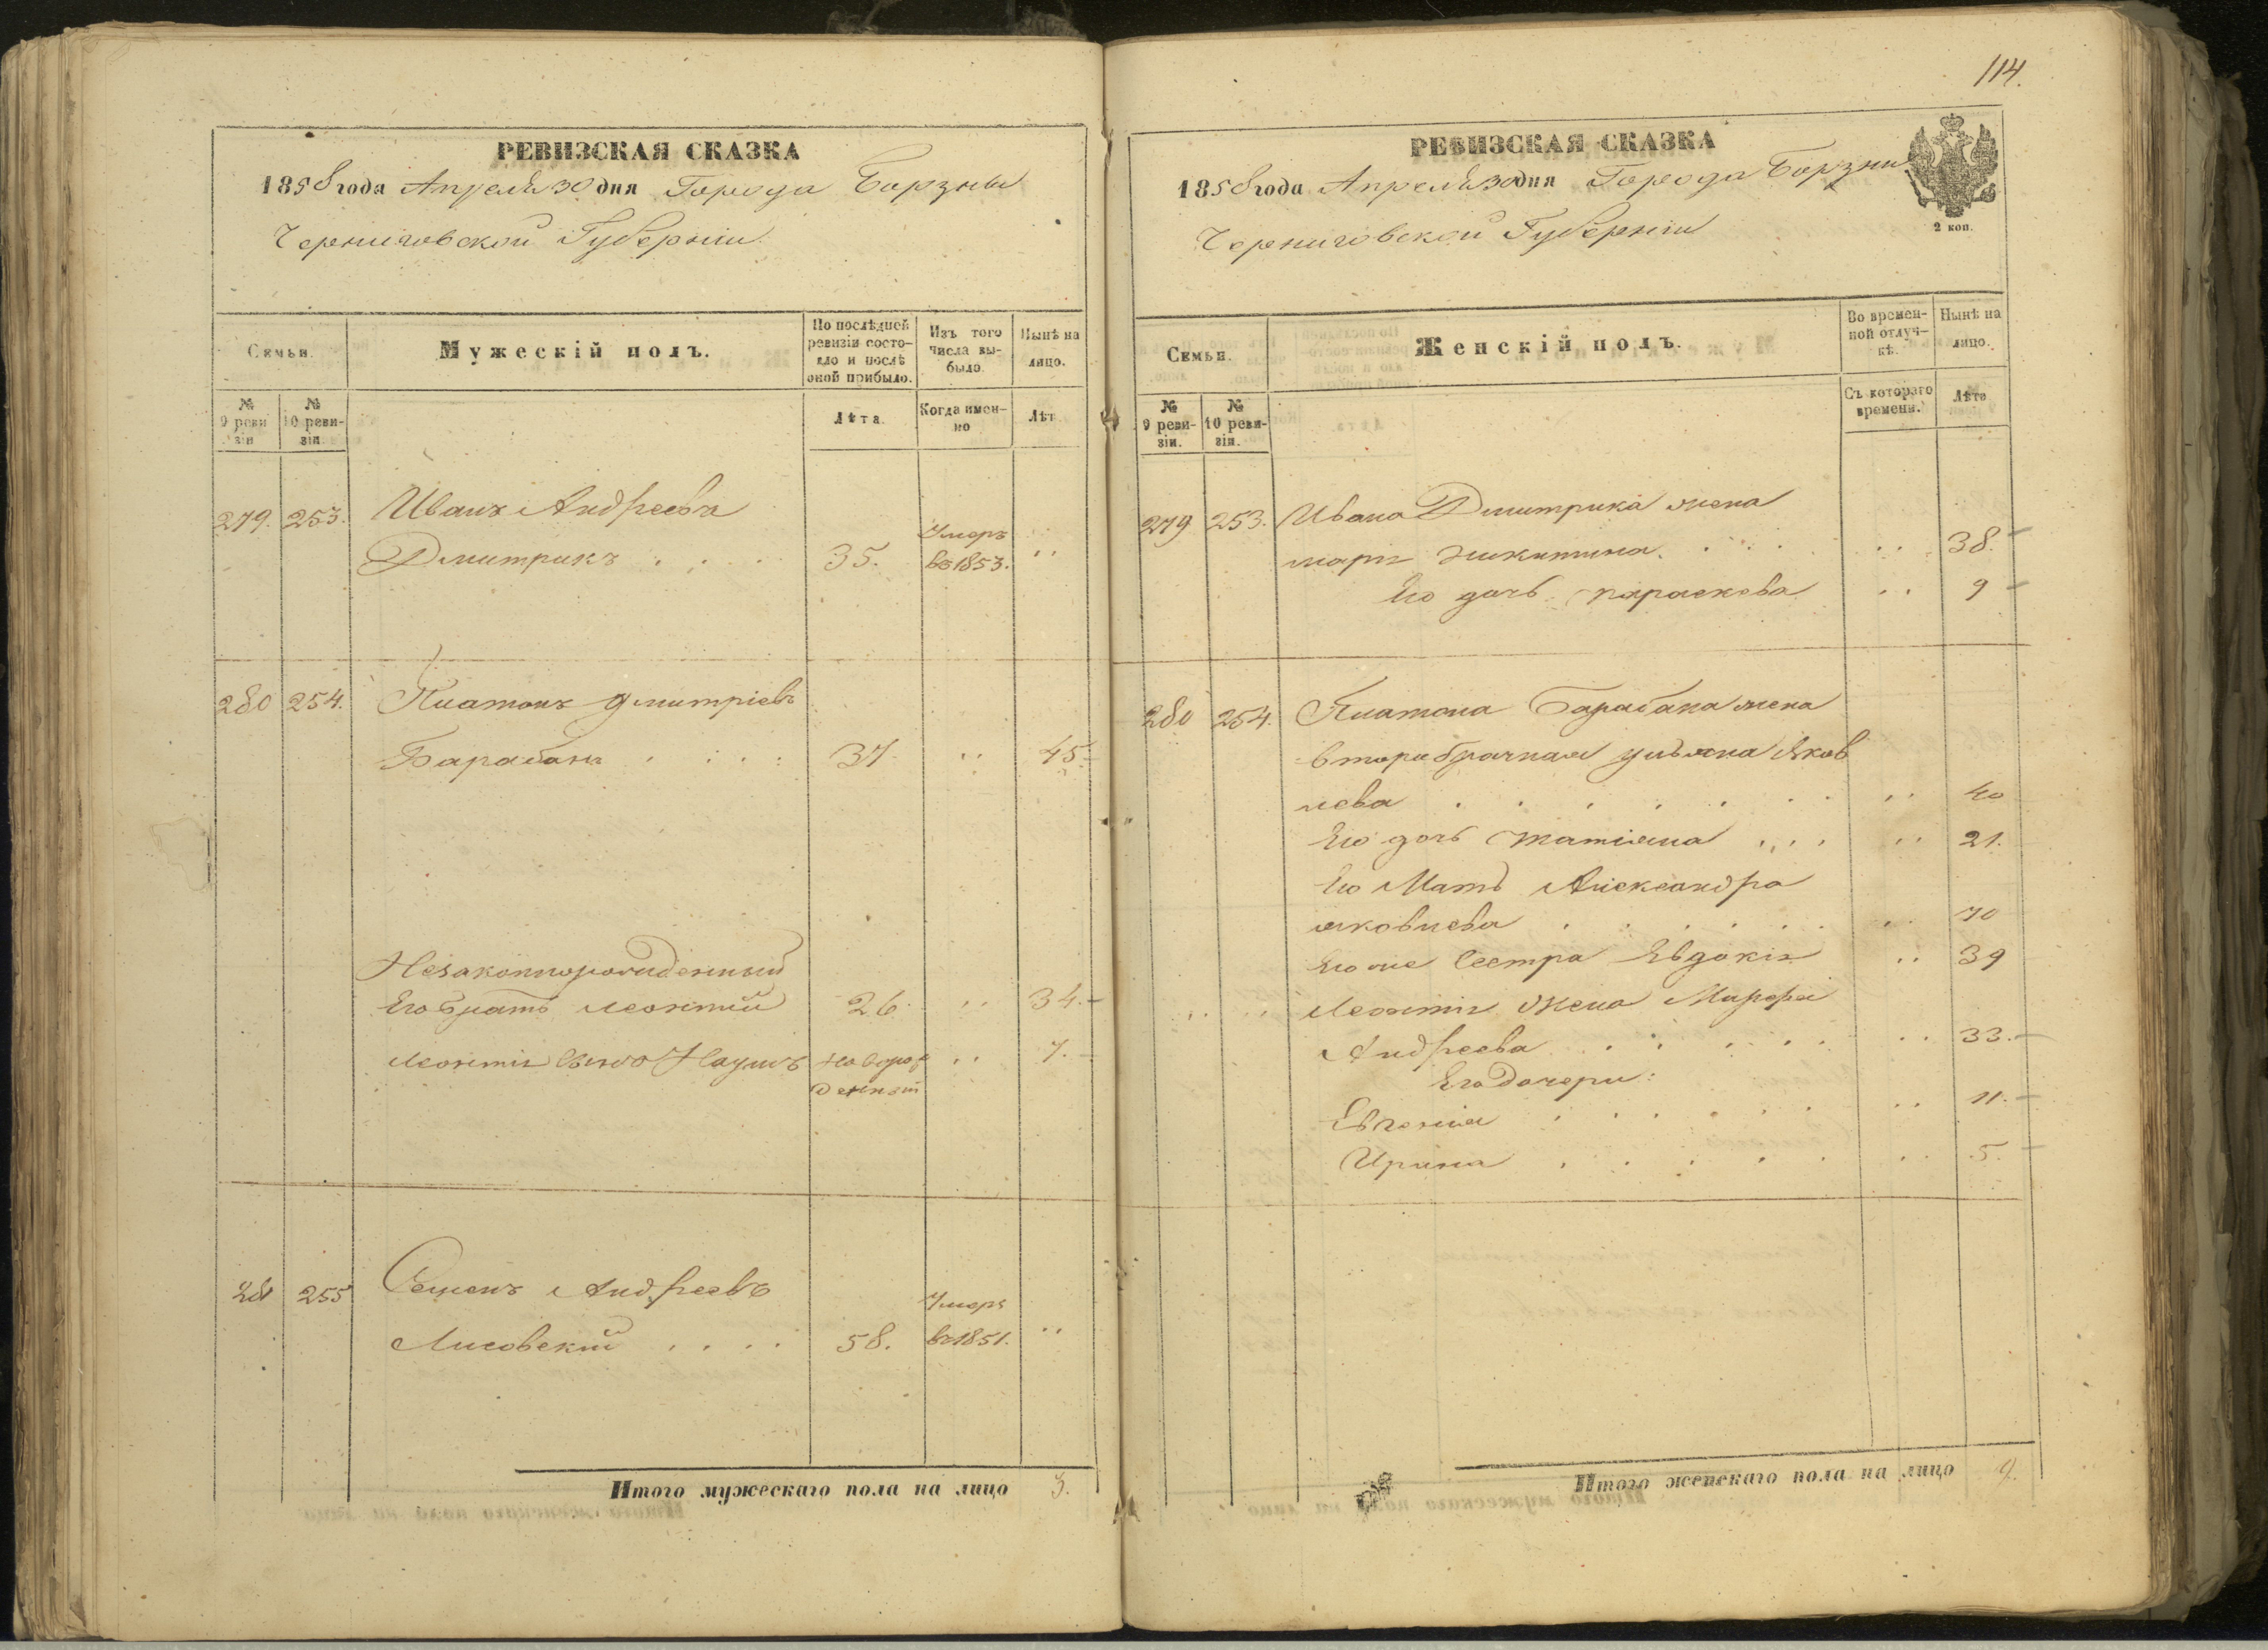 РЕВИЗСКАЯ СКАЗКА
1858 года Апреля 30 дня Города Борзны
Черниговской Губерніи
Семьи.
Мужескій полъ.
По послѣдней ревизіи состояло и послѣ оной прибыло.
Изъ того числа выбыло.
Нынѣ на лицо.
№ 9 ревизіи
№ 10 ревизіи.
Лѣта.
Когда именно
Лѣт
279. 253. Иванъ Андреевъ
Дмитрикъ . . . 35. Умеръ въ 1853. "
280 254. Платонъ Дмитріевъ
Барабанъ . . . . 37 " 45.
Незаконнорожденный
Его братъ Леонтій 26 " 34.
Леонтія сынъ Наумъ новорожденный " 7.
281 255 Семенъ Андреевъ
Лисовскій . . . . 58. Умеръ въ 1851. "
Итого мужескаго пола на лицо 3.
114.
РЕВИЗСКАЯ СКАЗКА
1858 года Апреля 30 дня Города Борзны
Черниговской Губерніи
2 коп.
Семьи.
Женскій полъ.
Во временной отлучкѣ.
Нынѣ на лицо.
№ 9 ревизіи.
№ 10 ревизіи.
Съ котораго времени.
Лѣта
279 253. Ивана Дмитрика жена
Марія Никитина . . . . " 38.
Его дочь Параскева " 9
280 254. Платона Барабана жена
второбрачная Ульяна Яков
лева . . . . . . . " 40
Его дочь Татіяна . . . . " 21.
Его Мать Александра
Яковлева . . . . . " 70
Его же Сестра Евдокія " 39
Леонтія Жена Марфа
Андреева . . . . . " 33.
Его Дочери:
Евгенія . . . . . " 11.
Ирина . . . . . " 5.
Итого женскаго пола на лицо 9.